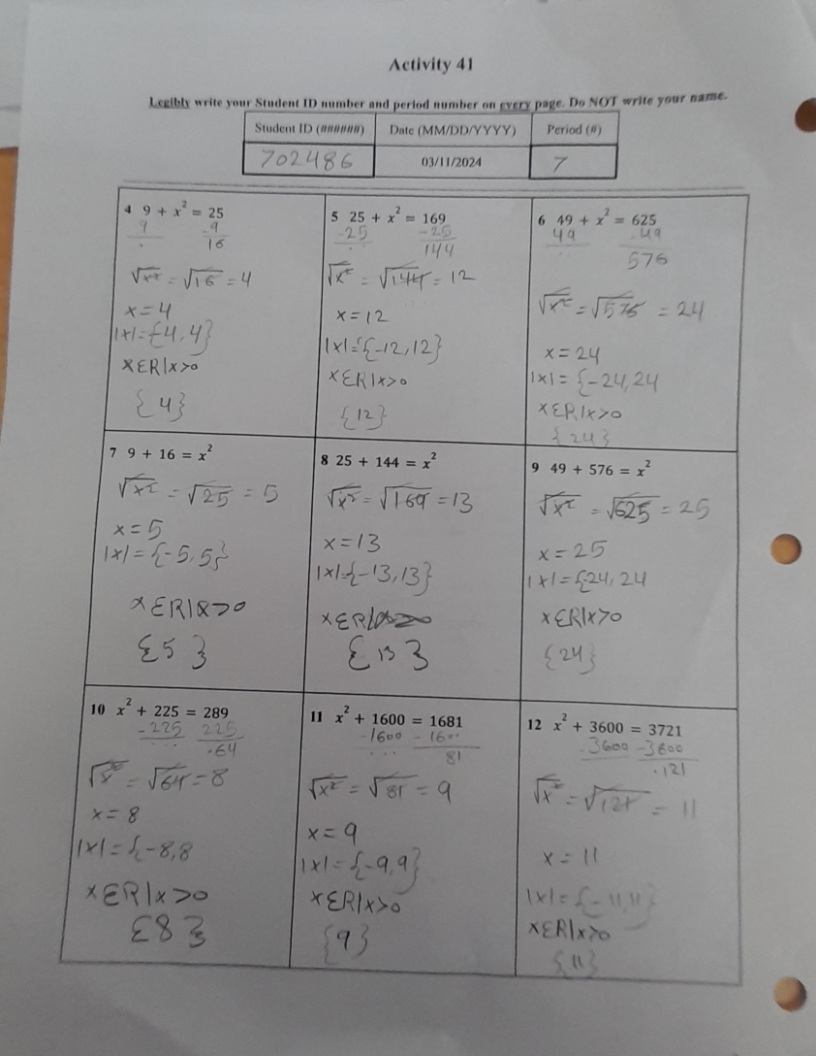 Activity 41
Legibly write your Student ID number and period number on every page. Do NOT write your name.
Student ID (######) Date (MM/DD/YYYY) Period (#)
702486 03/11/2024 7
4 9 + x² = 25
9 -9
16
√x² = √16 = 4
x = 4
|x| = {-4, 4}
x ε R | x > 0
{4}
5 25 + x² = 169
-25 -25
144
√x² = √144 = 12
x = 12
|x| = {-12, 12}
x ε R | x > 0
{12}
6 49 + x² = 625
49 -49
576
√x² = √576 = 24
x = 24
|x| = {-24, 24
x ε R, | x > 0
{24}
7 9 + 16 = x²
√x² = √25 = 5
x = 5
|x| = {-5, 5}
x ε R | x > 0
{5}
8 25 + 144 = x²
√x² = √169 = 13
x = 13
|x| = {-13, 13}
x ε R |
{13}
9 49 + 576 = x²
√x² = √625 = 25
x = 25
|x| = {24, 24
x ε R | x > 0
{24}
10 x² + 225 = 289
-225 225
64
√x² = √64 = 8
x = 8
|x| = {-8, 8
x ε R | x > 0
{8}
11 x² + 1600 = 1681
-1600 -1600
81
√x² = √81 = 9
x = 9
|x| = {-9, 9}
x ε R | x > 0
{9}
12 x² + 3600 = 3721
3600 -3600
121
√x² = √121 = 11
x = 11
|x| = {-11, 11}
x ε R | x > 0
{11}